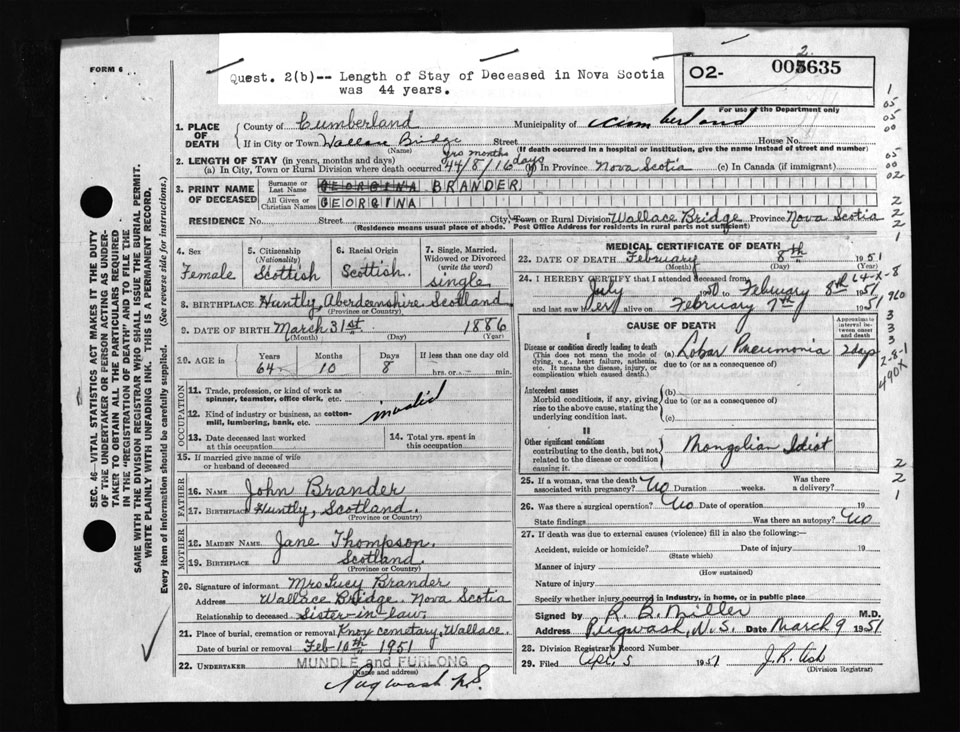 FORM 6
Quest. 2(b)-- Length of Stay of Deceased in Nova Scotia
was 44 years.
O2- 005635
2
For use of the Department only
1. PLACE OF DEATH County of Cumberland Municipality of Cumberland
If in City or Town Wallace Bridge Street House No.
(Name) (If death occurred in a hospital or institution, give the name instead of street and number)
2. LENGTH OF STAY (in years, months and days) yrs months days
(a) In City, Town or Rural Division where death occurred 44/8/16 (b) In Province Nova Scotia (c) In Canada (if immigrant)
3. PRINT NAME OF DECEASED Surname or Last Name GEORGINA BRANDER
All Given or Christian Names GEORGINA
RESIDENCE No. Street City, Town or Rural Division Wallace Bridge Province Nova Scotia
(Residence means usual place of abode. Post Office Address for residents in rural parts not sufficient)
4. Sex Female
5. Citizenship (Nationality) Scottish
6. Racial Origin Scottish.
7. Single, Married, Widowed or Divorced (write the word) single
8. BIRTHPLACE Huntly, Aberdeenshire Scotland
(Province or Country)
9. DATE OF BIRTH March 31st 1886
(Month) (Day) (Year)
10. AGE in Years Months Days If less than one day old
64 10 8 hrs. or min.
OCCUPATION
11. Trade, profession, or kind of work as spinner, teamster, office clerk, etc.
invalid
12. Kind of industry or business, as cotton-mill, lumbering, bank, etc.
13. Date deceased last worked at this occupation
14. Total yrs. spent in this occupation
15. If married give name of wife or husband of deceased
FATHER
16. NAME John Brander
17. BIRTHPLACE Huntly, Scotland.
(Province or Country)
MOTHER
18. MAIDEN NAME Jane Thompson.
19. BIRTHPLACE Scotland.
(Province or Country)
20. Signature of informant Mrs Lucy Brander
Address Wallace Bridge. Nova Scotia
Relationship to deceased Sister-in-law.
21. Place of burial, cremation or removal Knox cemetary, Wallace.
Date of burial or removal Feb 10th 1951
22. UNDERTAKER MUNDLE and FURLONG
(Name and address)
Pugwash N.S.
MEDICAL CERTIFICATE OF DEATH
23. DATE OF DEATH February 8th 1951
(Month) (Day) (Year)
24. I HEREBY CERTIFY that I attended deceased from
July 1950 to February 8th 1951
and last saw her alive on February 7th 1951
CAUSE OF DEATH
Approximate interval between onset and death
Disease or condition directly leading to death (a) Lobar Pneumonia 2 days
(This does not mean the mode of dying, e.g., heart failure, asthenia, etc. It means the disease, injury, or complication which caused death.)
due to (or as a consequence of)
Antecedent causes
Morbid conditions, if any, giving rise to the above cause, stating the underlying condition last.
(b)
due to (or as a consequence of)
(c)
II
Other significant conditions contributing to the death, but not related to the disease or condition causing it.
Mongolian Idiot
25. If a woman, was the death associated with pregnancy? No Duration weeks. Was there a delivery?
26. Was there a surgical operation? No Date of operation 19
State findings Was there an autopsy? No
27. If death was due to external causes (violence) fill in also the following:—
Accident, suicide or homicide? Date of injury 19
(State which)
Manner of injury
(How sustained)
Nature of injury
Specify whether injury occurred in industry, in home, or in public place
Signed by R B. Miller M.D.
Address Pugwash, N.S. Date March 9 1951
28. Division Registrar's Record Number
29. Filed Apr. 5 1951
(Division Registrar)
SEC. 46—VITAL STATISTICS ACT MAKES IT THE DUTY
OF THE UNDERTAKER OR PERSON ACTING AS UNDER-
TAKER TO OBTAIN ALL THE PARTICULARS REQUIRED
IN THE "REGISTRATION OF DEATH" AND TO FILE THE
SAME WITH THE DIVISION REGISTRAR WHO SHALL ISSUE THE BURIAL PERMIT.
WRITE PLAINLY WITH UNFADING INK. THIS IS A PERMANENT RECORD.
Every item of information should be carefully supplied. (See reverse side for instructions.)
1
05
05
00
05
00
02
2
2
2
1
64-X-8
960
3
3
3
2-8-1
490X
2
2
1